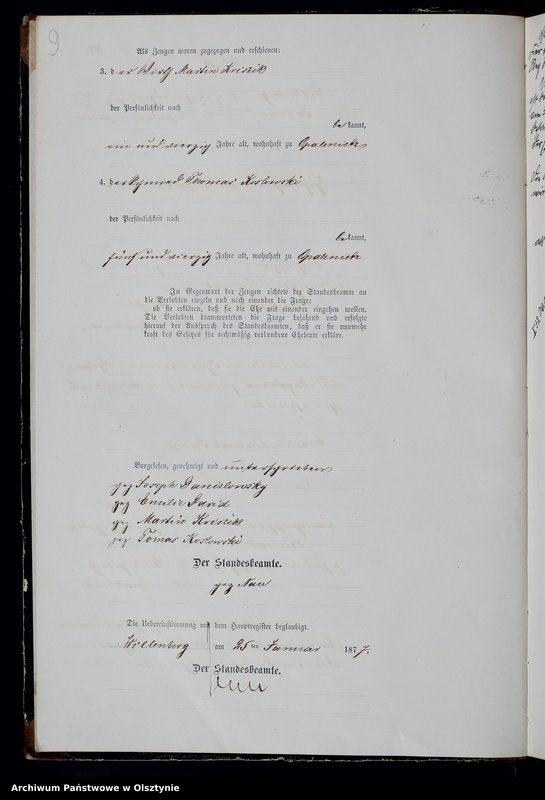 9
Als Zeugen waren zugezogen und erschienen:
3. der Wirth Martin Kriszik
der Persönlichkeit nach
bekannt,
ein und vierzig Jahre alt, wohnhaft zu Opalenietz
4. der Thomas Koslowski
der Persönlichkeit nach
bekannt,
fünf und vierzig Jahre alt, wohnhaft zu Opalenietz
In Gegenwart der Zeugen richtete der Standesbeamte an
die Verlobten einzeln und nach einander die Frage:
ob sie erklären, daß sie die Ehe mit einander eingehen wollen.
Die Verlobten beantworteten die Frage bejahend und erfolgte
hierauf der Ausspruch des Standesbeamten, daß er sie nunmehr
kraft des Gesetzes für rechtmäßig verbundene Eheleute erkläre.
Vorgelesen, genehmigt und unterschrieben
gez Joseph Danielowsky
gez Emilie David
gez Martin Kriszik
gez Tomas Koslowski
Der Standesbeamte.
gez Nau
Die Uebereinstimmung mit dem Hauptregister beglaubigt.
Willenberg am 25 ten Januar 1877.
Der Standesbeamte.
Nau
Archiwum Państwowe w Olsztynie